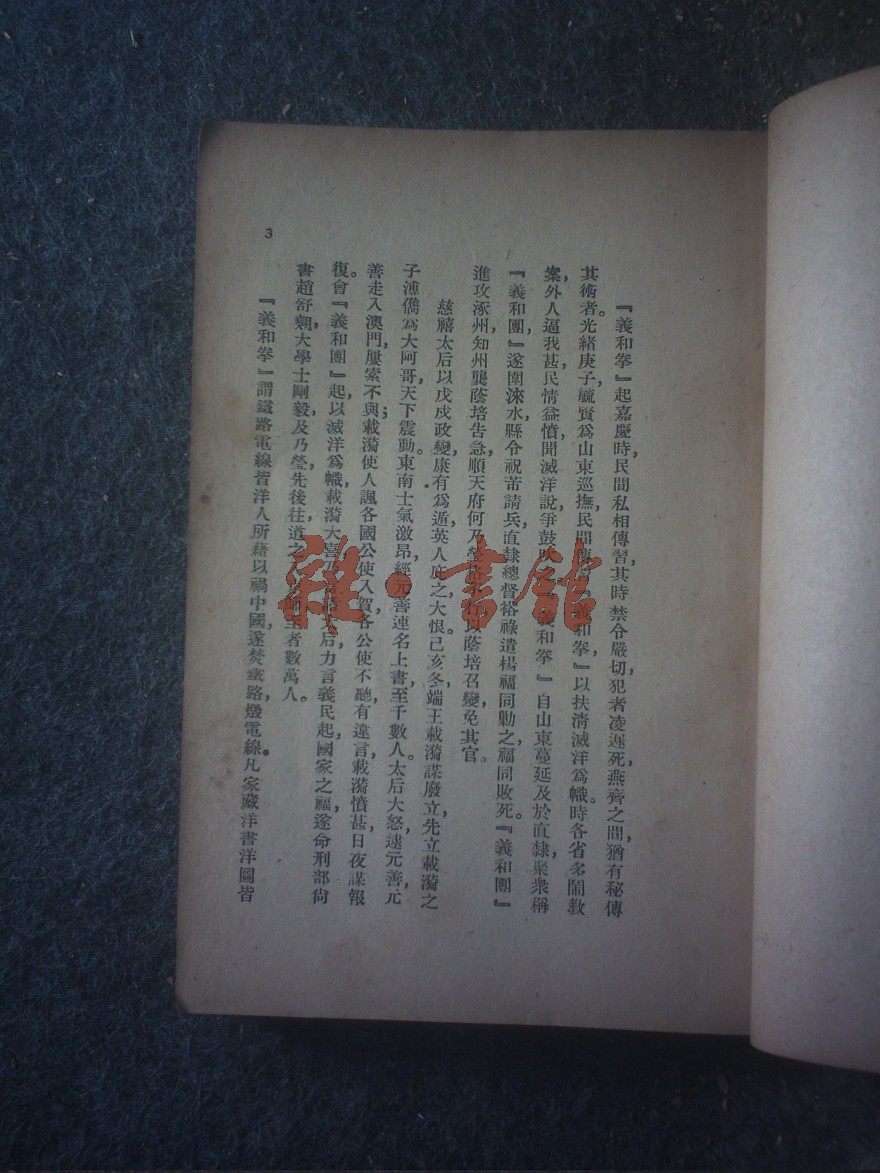 『義和拳』起嘉慶時，民間私相傳習，其時禁令嚴切，犯者凌遲死，燕齊之間，猶有秘傳
其術者。光緒庚子，毓賢爲山東巡撫，民間傳『義和拳』，以扶清滅洋爲幟。時各省多鬧教
案，外人逼我甚，民情益憤，聞滅洋說，爭鼓 和拳』自山東蔓延及於直隸，聚衆稱
『義和團』，遂圍淶水，縣令祝芾請兵，直隸總督裕祿遣楊福同勦之，福同敗死。『義和團』
進攻涿州，知州龔蔭培告急，順天府何乃瑩 蔭培召變，免其官。
慈禧太后以戊戌政變，康有爲遁，英人庇之，大恨。己亥冬，端王載漪謀廢立，先立載漪之
子溥儁爲大阿哥，天下震動。東南士氣激昂，經元善連名上書至千數人。太后大怒，逮元善，元
善走入澳門，屢索不與；載漪使人諷各國公使入賀，各公使不聽，有違言，載漪憤甚，日夜謀報
復。會『義和團』起，以滅洋爲幟，載漪大喜，乃言諸太后，力言義民起，國家之福，遂命刑部尚
書趙舒翹，大學士剛毅，及乃瑩，先後往道之 至者數萬人。
『義和拳』謂鐵路電線，皆洋人所藉以禍中國，遂焚鐵路，燬電線。凡家藏洋書洋圖，皆
3
雜·書館